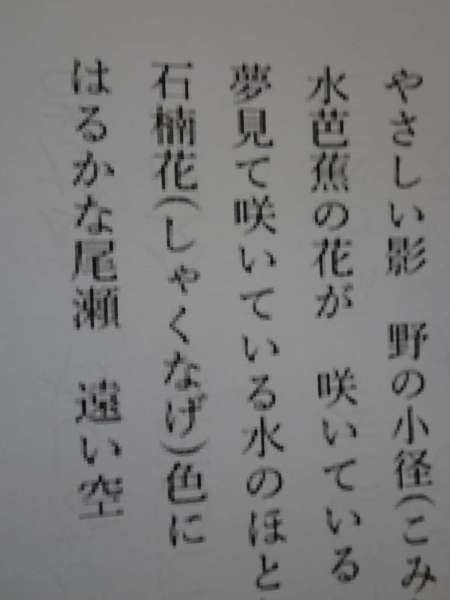 やさしい影　野の小径(こみ
水芭蕉の花が　咲いている
夢見て咲いている水のほと
石楠花(しゃくなげ)色に
はるかな尾瀬　遠い空